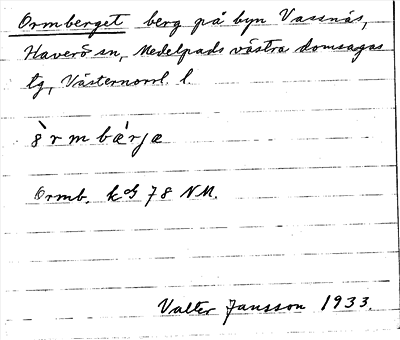 Ormberget berg på byn Vassnäs,
Haverö sn, Medelpads västra domsagas
tg, Västernorrl. l.
òrmbær̀jæ
Ormb. k 78 NM.
Valter Jansson 1933.